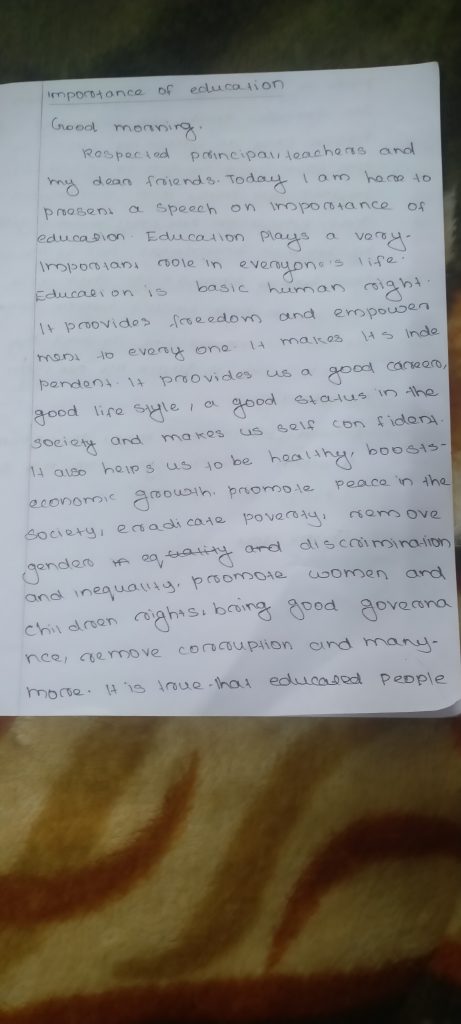 Importance of education
Good morning.
Respected principal, teachers and
my dear friends. Today I am here to
present a speech on importance of
education. Education plays a very-
important role in everyone's life.
Education is basic human right.
It provides freedom and empower
ment to every one. It makes its inde
pendent. It provides us a good career,
good life style, a good status in the
society and makes us self confident.
It also helps us to be healthy, boosts-
economic growth, promote peace in the
society, eradicate poverty, remove
gender eq uality and discrimination
and inequality, promote women and
children rights, bring good governa
nce, remove corruption and many-
more. It is true that educated people